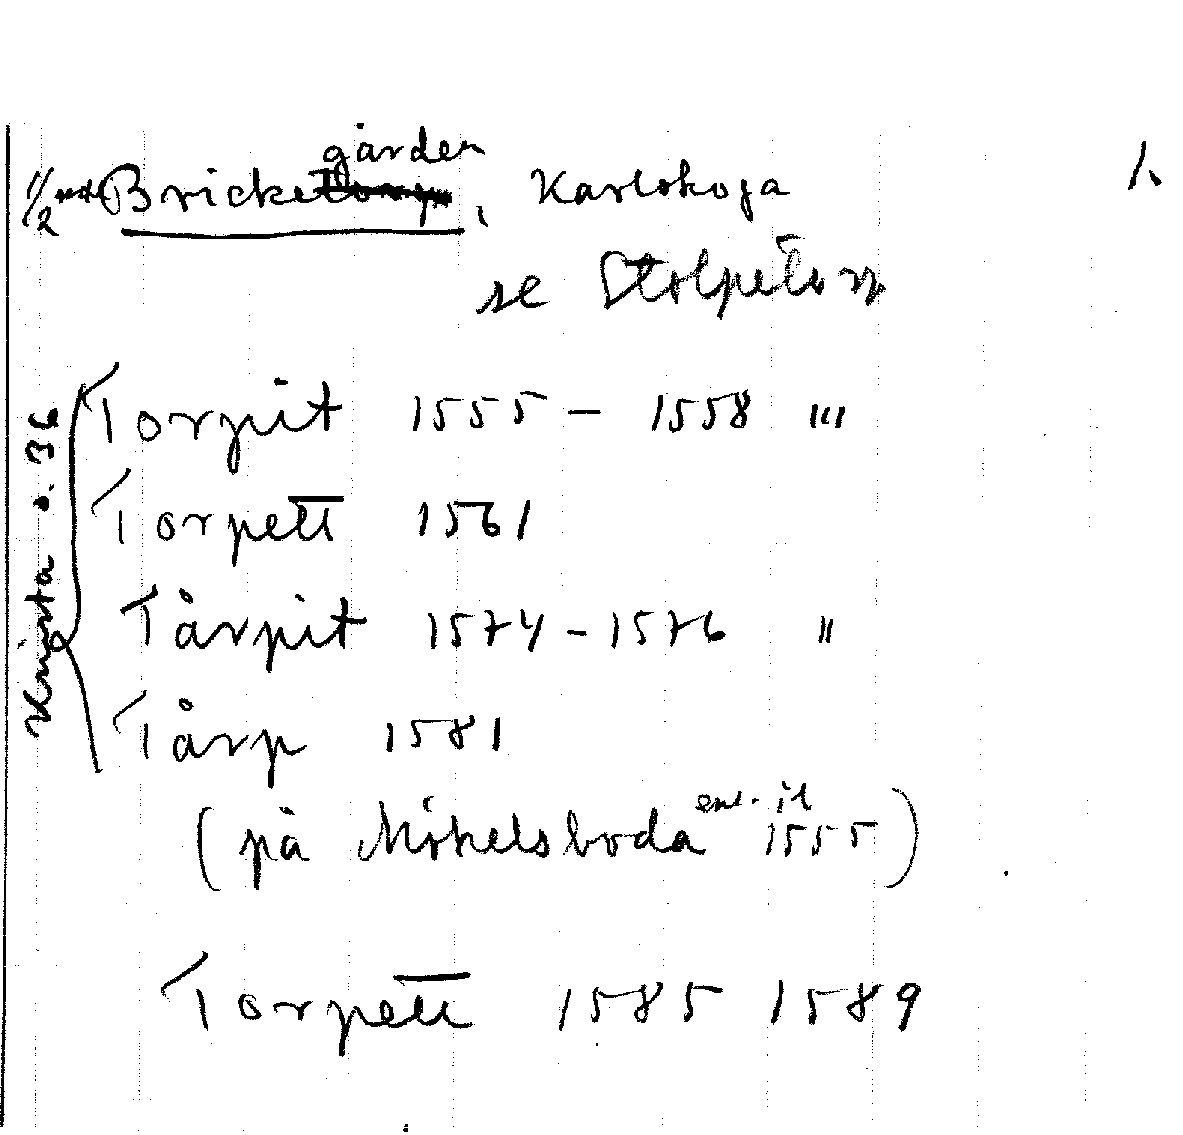 1/2 mtl Bricketorp gården, Karlskoga 1.
se Stolpetorp
Torpit 1555 – 1558 "'
Torpett 1561
Tårpit 1574 – 1576 "
Tårp 1581
(på Mikelsboda enl. jt 1555)
Torpett 1585 1589
s. 36